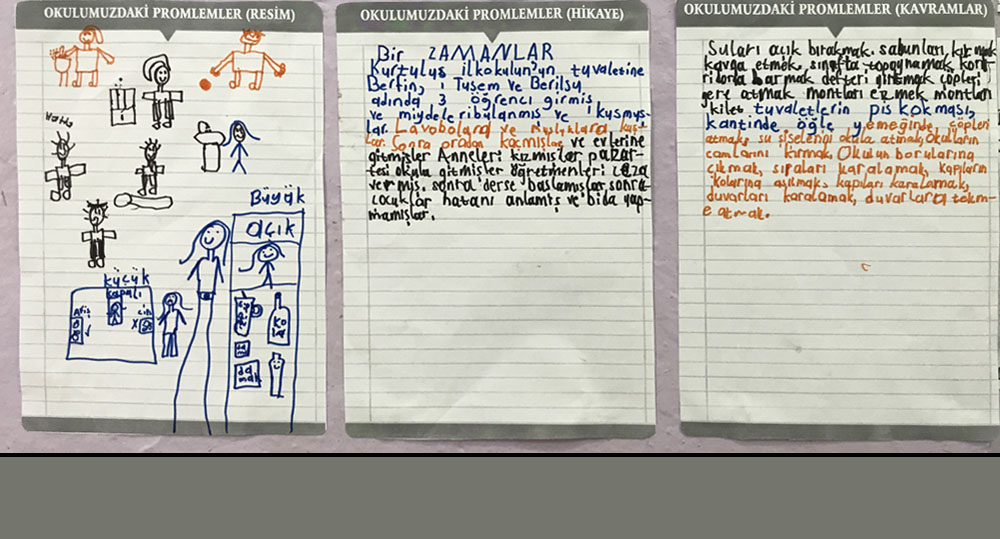 OKULUMUZDAKİ PROMLEMLER (RESİM)
Büyük
açık
küçük
kapalı
OKULUMUZDAKİ PROMLEMLER (HİKAYE)
Bir ZAMANLAR
Kurtuluş ilkokulun'un tuvaletine
Berfin, Tuşem ve Berilsu
adında 3 öğrenci girmiş
ve mideleri bulanmış ve kusmuş-
lar. Lavobolara ve
Sonra oradan kaçmışlar ve evlerine
gitmişler Anneleri kızmışlar pazar-
tesi okula gitmişler öğretmenleri ceza
vermiş. sonra derse başlamışlar sonra
çocuklar hatanı anlamış ve bida yap-
mamışlar.
OKULUMUZDAKİ PROMLEMLER (KAVRAMLAR)
Suları açık bırakmak. sabunları, kırmak
kavga etmek, sınıfta top oynamak, kori-
dorda defteri çöpleri
yere atmak montları ezmek montları
tuvaletlerin pis kokması,
kantinde öğle yemeğinde, çöpleri
atmak, su şişelerini okula atmak, okulların
camlarını kırmak, Okulun borularına
çıkmak, sıraları karalamak, kapıların
kolarına asılmak, kapıları karalamak,
duvarları karalamak, duvarlara tekm-
e atmak.